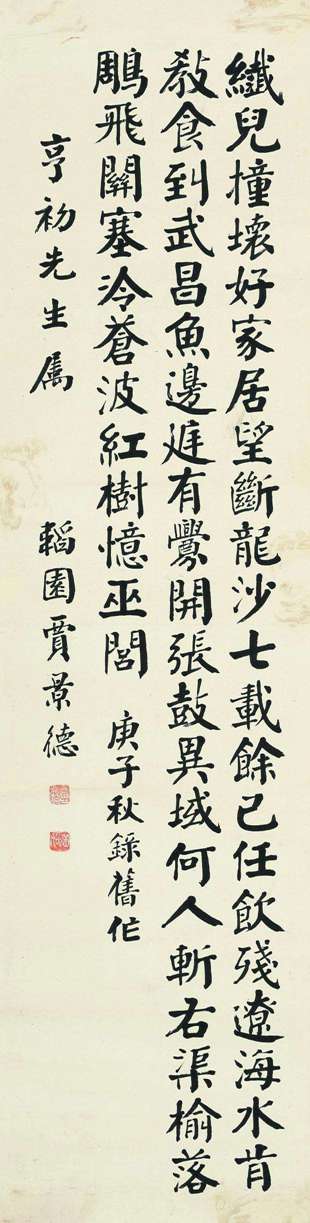 纖兒撞壞好家居望斷龍沙七載餘已任飲殘遼海水肯
教食到武昌魚邊庭有釁開張鼓異域何人斬右渠榆落
鵰飛關塞冷蒼波紅樹憶巫閭 庚子秋錄舊作
亨初先生屬 韜園賈景德